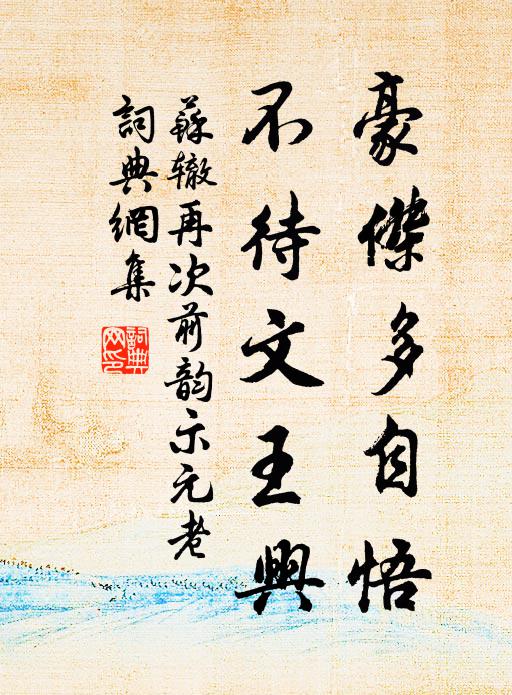 豪傑多自悟
不待文王興
蘇辙再次前韵示元老
詞典網集
詞典網印